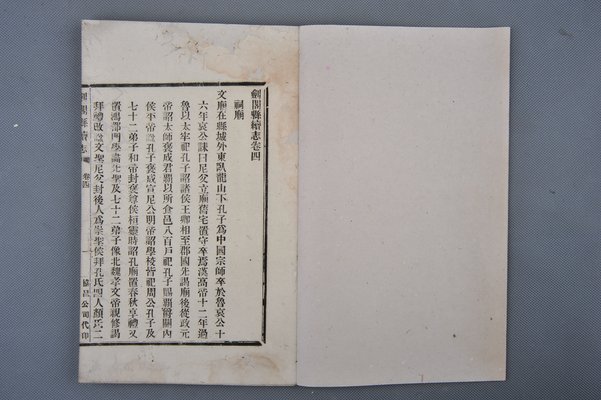 劍閣縣續志卷四
祠廟
文廟在縣城外東臥龍山下孔子爲中國宗師卒於魯哀公十
六年哀公誄曰尼父立廟舊宅置守卒焉漢高帝十二年過
魯以太牢祀孔子詔諸侯王卿相至郡國先謁廟後從政元
帝詔太師褒成君霸以所食邑八百戶祀孔子賜霸爵關內
侯平帝諡孔子褒成宣尼公明帝詔學校皆祀周公孔子及
七十二弟子和帝封褒尊侯桓靈時詔孔廟置春秋享禮又
置鴻都門學畫先聖及七十二弟子像北魏孝文帝親修謁
拜禮改諡文聖尼父封後人爲崇聖侯拜孔氏四人顏氏二
劍閣縣續志
卷四
一
協昌公司代印